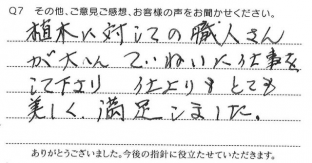 Q7 その他、ご意見ご感想、お客様の声をお聞かせください。
植木に対しての職人さん
が大へん ていねいに仕事を
して下さり 仕上りも とても
美しく 満足しました。
ありがとうございました。今後の指針に役立たせていただきます。